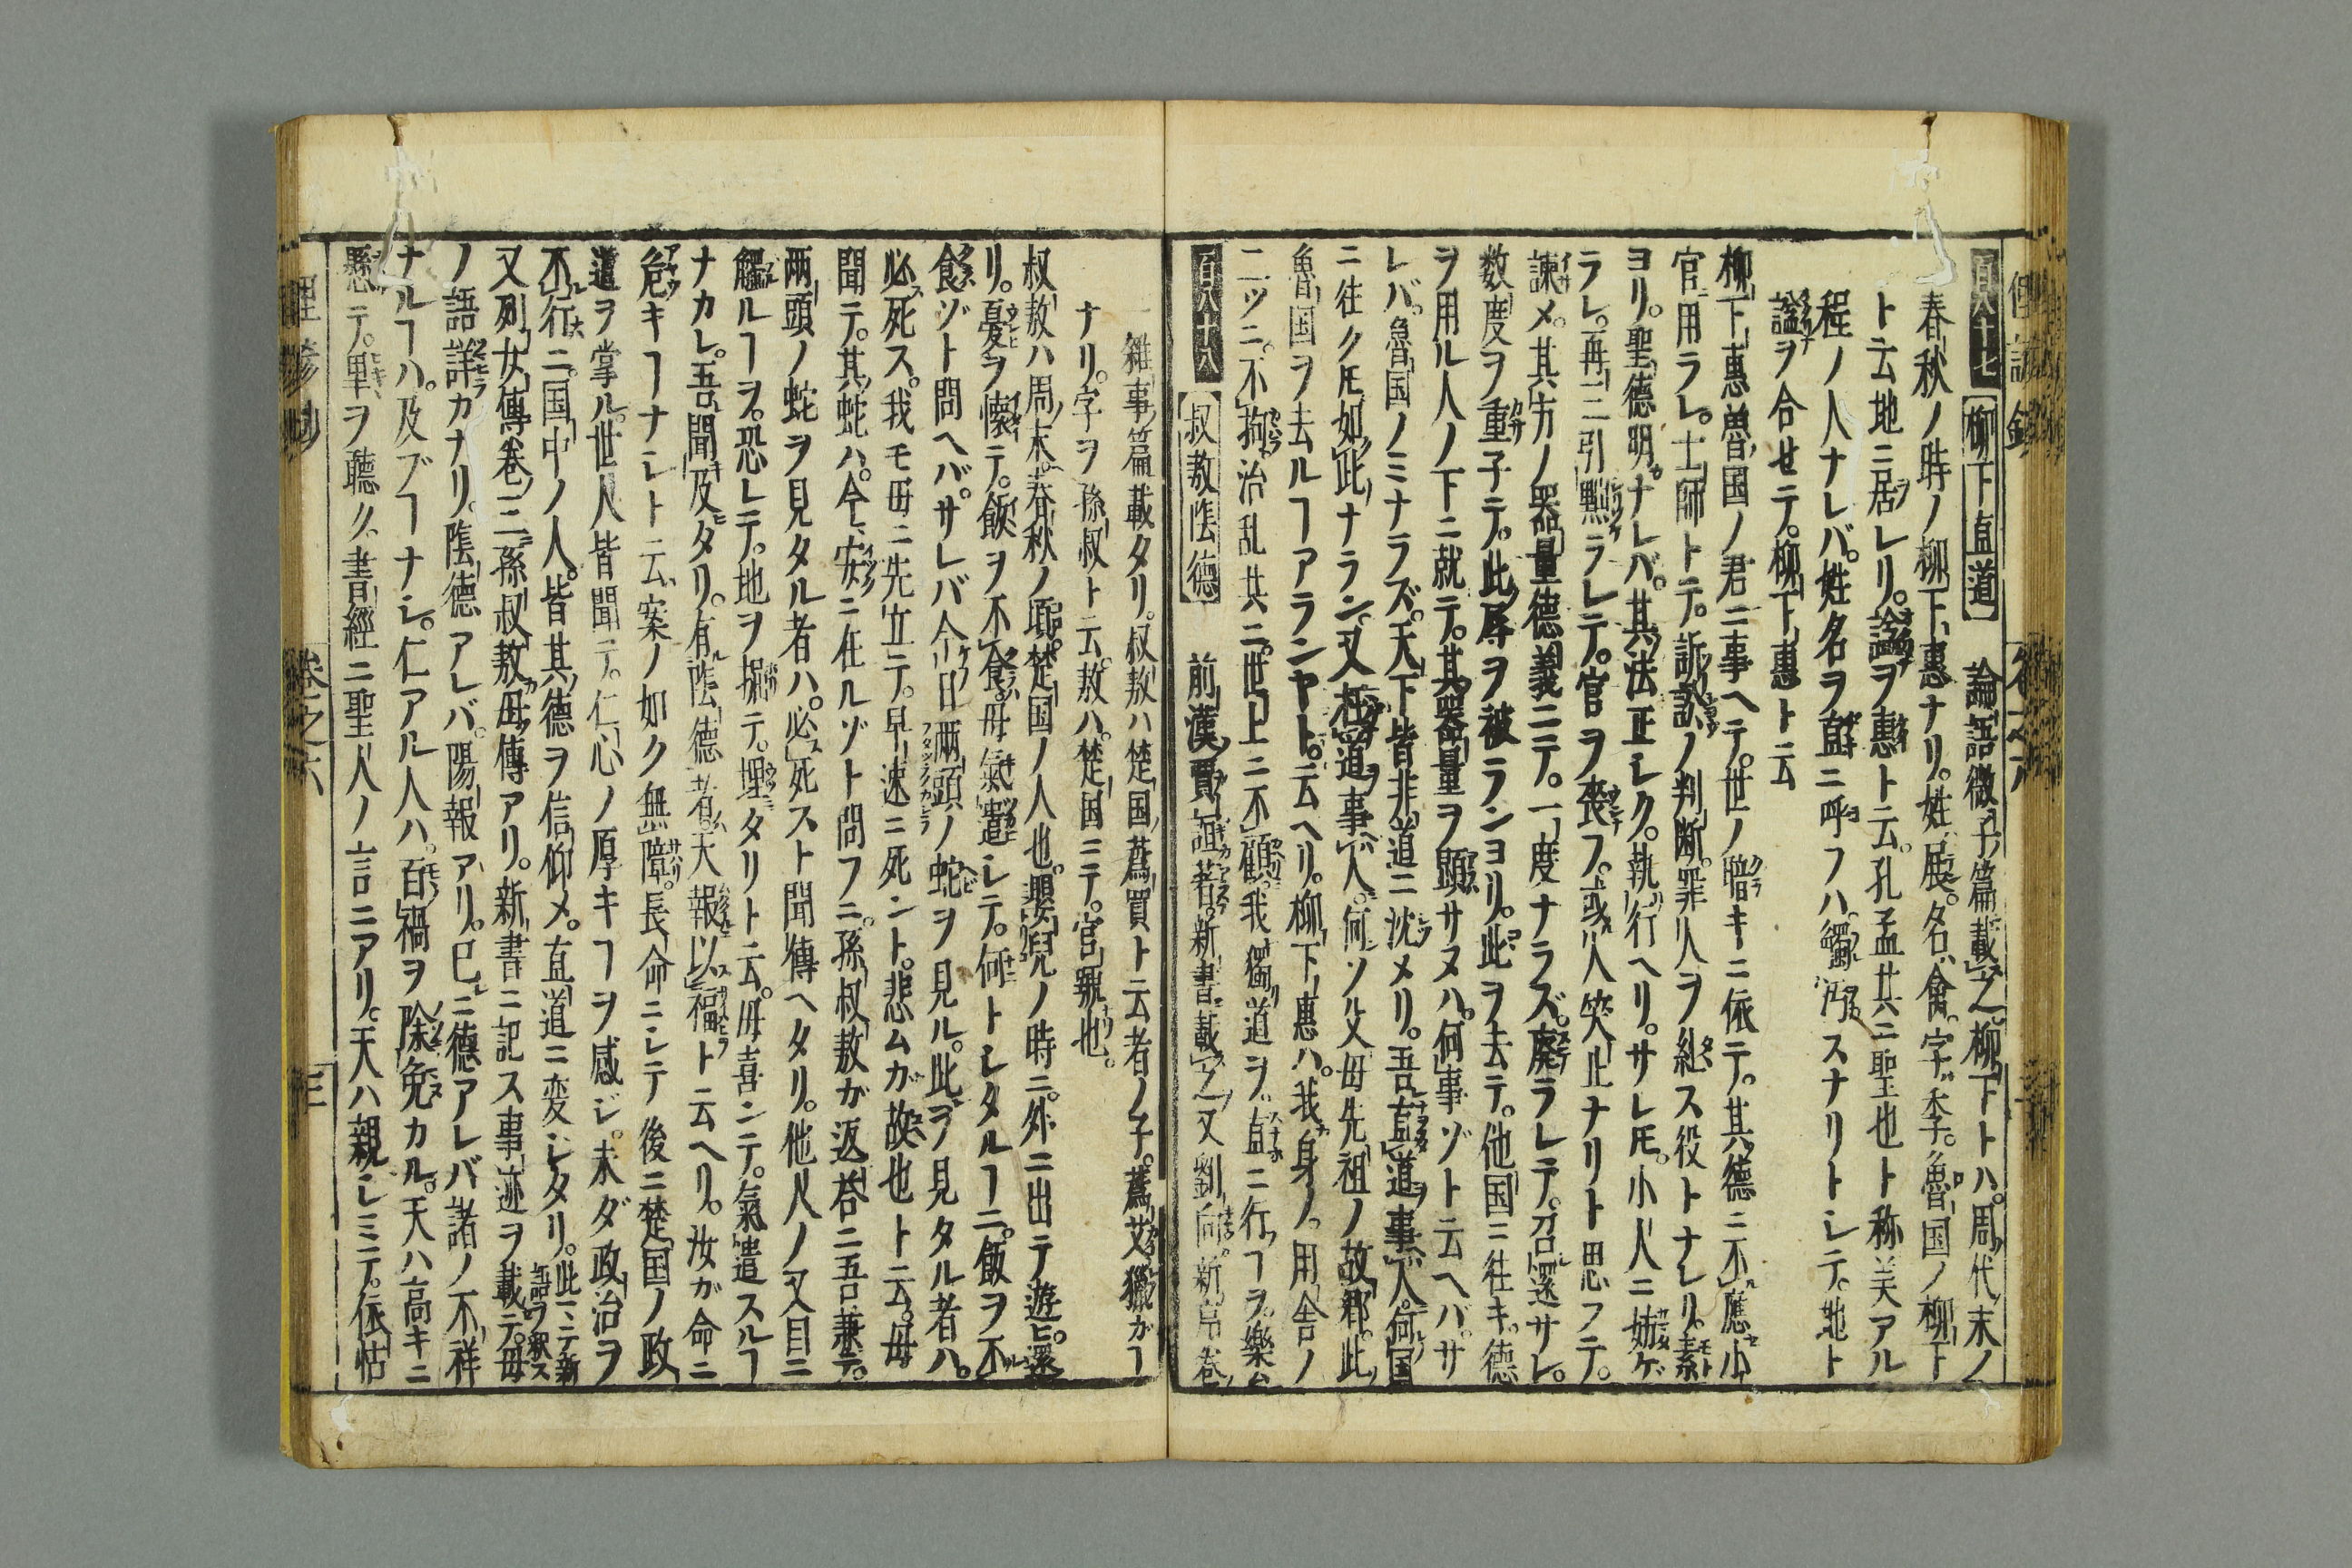 百八十七【柳下直道】 論語微子篇載之柳下トハ。周代末ノ
春秋ノ時ノ柳下惠ナリ。姓展。名禽。字季。魯国ノ柳下
ト云地ニ居レリ。諡ヲ惠ト云。孔孟共ニ聖也ト称美アル
程ノ人ナレバ。姓名ヲ直ニ呼フハ。觸汚スナリトレテ。地ト
諡ヲ合セテ。柳下惠ト云
柳下惠魯国ノ君ニ事ヘテ。世ノ暗キニ依テ。其德ニ不應小
官用ラレ。士師トテ。訴訟ノ判断。罪人ヲ糺ス役トナレリ。素
ヨリ。聖德明ナレバ。其法正レク。執行ヘリ。サレ𪜈。小人ニ妨ゲ
ラレ。再三引黜ラレテ。官ヲ喪フ。或人笑止ナリト思フテ。
諌メ。其方ノ器量德義ニテ。一度ナラズ。廢ラレテ。召還サレ。
数度ヲ重子テ。此辱ヲ被ランヨリ。此ヲ去テ。他国ニ往キ。德
ヲ用ル人ノ下ニ就テ。其器量ヲ顕サヌハ。何事ゾト云ヘバ。サ
レバ。魯国ノミナラズ。天下皆非道ニ沈メリ。吾直道事人。何国
ニ往ク𪜈如此ナラン。又枉道事人。何ソ父母先祖ノ故郡。此
魯国ヲ去ルヿアランヤト。云ヘリ。柳下惠ハ。我身ノ。用舎ノ
二ツニ。不拘治乱共ニ。世上ニ不顧。我獨道ヲ。直ニ行ヿヲ。樂
百八十八【叔敖陰德】 前漢賈誼著。新書載之又劉向。新序卷
雜事篇載タリ。叔敖ハ楚国蔿賈ト云者ノ子。蔿艾獵ガヿ
ナリ。字ヲ孫叔ト云。敖ハ。楚国ニテ。官號也。
叔敖ハ周末。春秋ノ頃。楚国ノ人也。嬰兒ノ時ニ。外ニ出テ遊ヒ。還
リ。憂ヲ懐テ。飯ヲ不食。母氣遣レテ。何トレタルヿニ。飯ヲ不
食ゾト問ヘバ。サレバ今日兩頭ノ蛇ヲ見ル。此ヲ見タル者ハ。
必死ス。我モ母ニ先立テ。早速ニ死ント。悲ムガ故也ト云。母
聞テ。其蛇ハ。今安ニ在ルゾト問フニ。孫叔敖ガ返荅ニ吾兼テ。
兩頭ノ蛇ヲ見タル者ハ。必死スト聞傳ヘタリ。他人ノ又目ニ
觸ルヿヲ。恐レテ。地ヲ掘テ。埋タリト云。母喜ンテ。氣遣スルヿ
ナカレ。吾聞及タリ。有陰德者。天報以福ト云ヘリ。汝ガ命ニ
危キヿナレト云、案ノ如ク無障。長命ニシテ後ニ楚国ノ政
道ヲ掌ル。世人皆聞テ。仁心ノ厚キヿヲ感ジ。未ダ政治ヲ
不行ニ。国中ノ人。皆其德ヲ信仰メ。直道ニ変レタリ。此ニテ新語ヲ釈ス
又列女傳卷三孫叔敖母傳アリ。新書ニ記ス事迹ヲ載テ。母
ノ語詳カナリ。陰德アレバ。陽報アリ。已ニ德アレバ諸ノ不祥
ナルヿハ。及ブヿナシ。仁アル人ハ。百禍ヲ除免カル。天ハ高キニ
懸テ。卑ヲ聽ク。書經ニ聖人ノ言ニアリ。天ハ親シミテ。依怙
卷之六